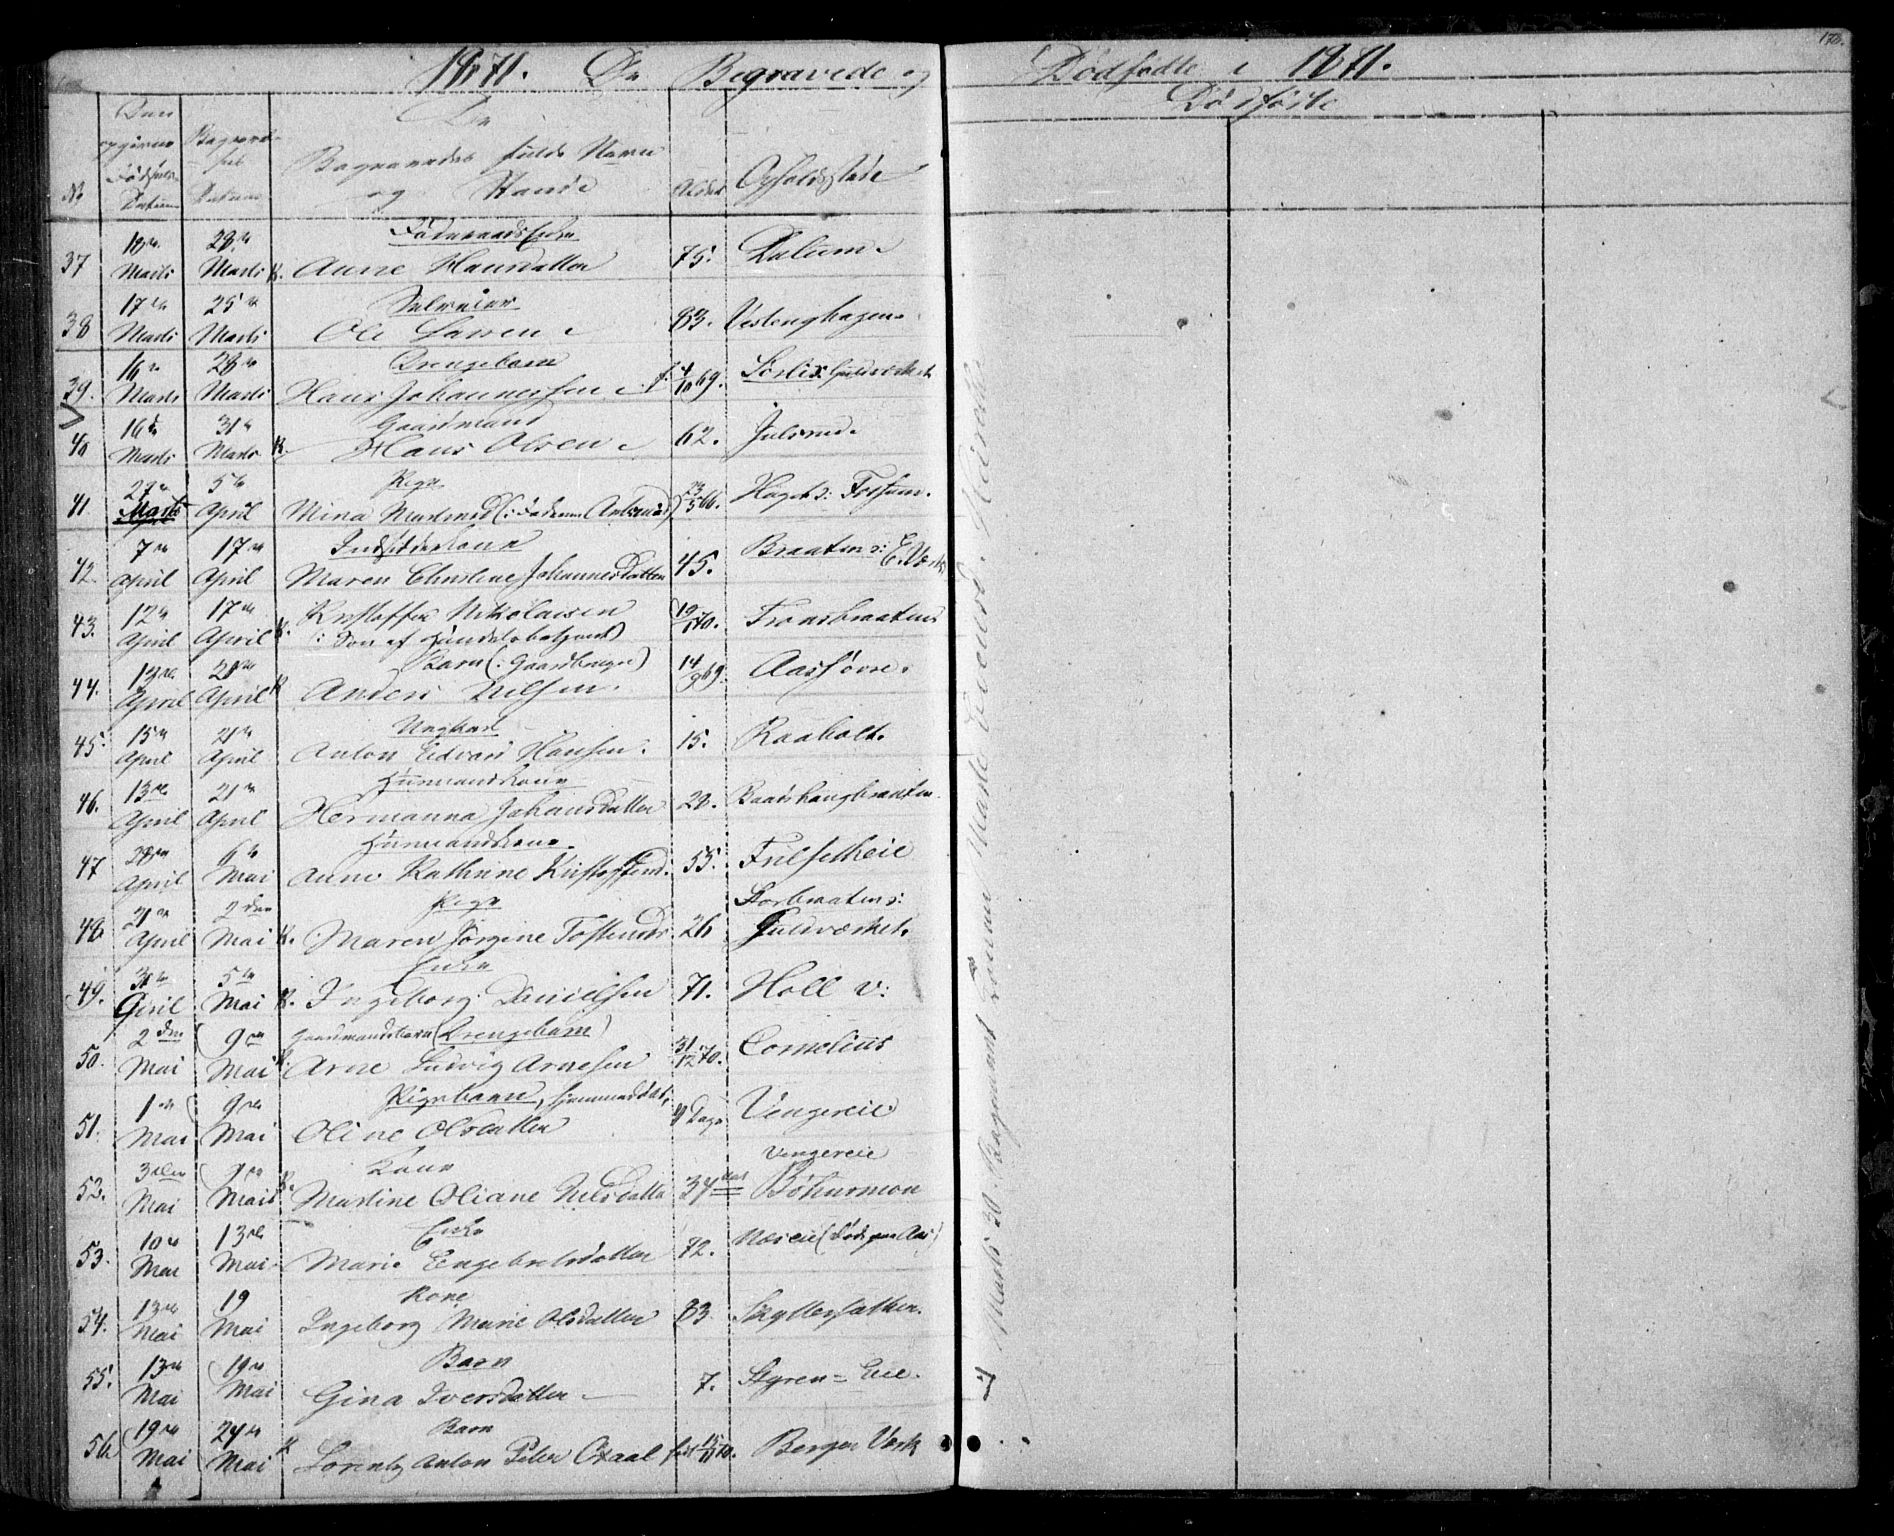 1871. De Begravede og Dødfødte i 1871.
176.
Dødfødte
No
Den opgivne Dødsfalds Datum
Begravelses Datum
Den Begravedes fulde Navn og Stand
Alder
Opholdssted
37 18de Marts 28de Marts K. Anne Hansdatter 75. Dalum.
38 17de Marts 25de Marts Selveier
Ole Larsen 83. Vestenghagen.
39. 16de Marts 28de Marts Drengebarn
Hans Johannessen f. 4/10 69. Guldværket
40 16de Marts 31te Marts K. Gaardmand
Hans Olsen 62. Julsrud.
41 27de Marts 5te April Pige
Mina 23/5 66. Haget v: Fossum.
42. 7de April 17de April Indsidderkone
Maren Christine Johannesdatter 45. Braaten v: E. Værk
43. 12te April 17de April K. Kristoffer Nikolaisen
(: Søn af Handelsbetjent) 70. Tronsbraaten
44. 13de April 21de April K Barn (: Gaardbruger)
Anders Nilsen. 14/9 69. Aas
45. 15de April 21de April Ungkarl
Anton Edvard Hansen. 15. Raaholt.
46. 13de April 21de April Huusmandskone
Hermanna Johansdatter 28. Baadshaugbraaten
47 28de April 6te Mai Huusmandskone.
Anne Kathrine Kristoffersd. 55. Fulsetheie
48 21de April 2den Mai K. Pige
Maren Jørgine Tostensdr 26 Storbraaten v: Guldværket.
49. April 5te Mai K. Enke
Ingeborg Danielsen 71. Holl v:
50. 2den Mai 9de Mai K. Gaardmandsbarn (Drengebarn)
Arne Ludvig Arnesen 31/12 70. Cornelius
51. 1ste Mai 9de Mai Pigebarn, hjemmedøbt,
Oline Olsdatter Dage Vengereie
52. 3die Mai 9de Mai K. Kone
Martine Oliane Nilsdatter 34 Aar Vengereie
Bøhnsmoen
53. 10de Mai 13de Mai. Enke
Marie Engebretsdatter 72. Næseie (Død paa Aas)
54. 13de Mai 19 Mai Kone
Ingeborg Marie Olsdatter 83 Skyttersætheren
55. 13de Mai 19de Mai Barn
Gina Iversdatter 7. Styren = Eie.
56 19de Mai 24de Mai K Barn
Lorentz Anton Peter Oxaal født 70. Berger Værk
Marts 30. Begravet